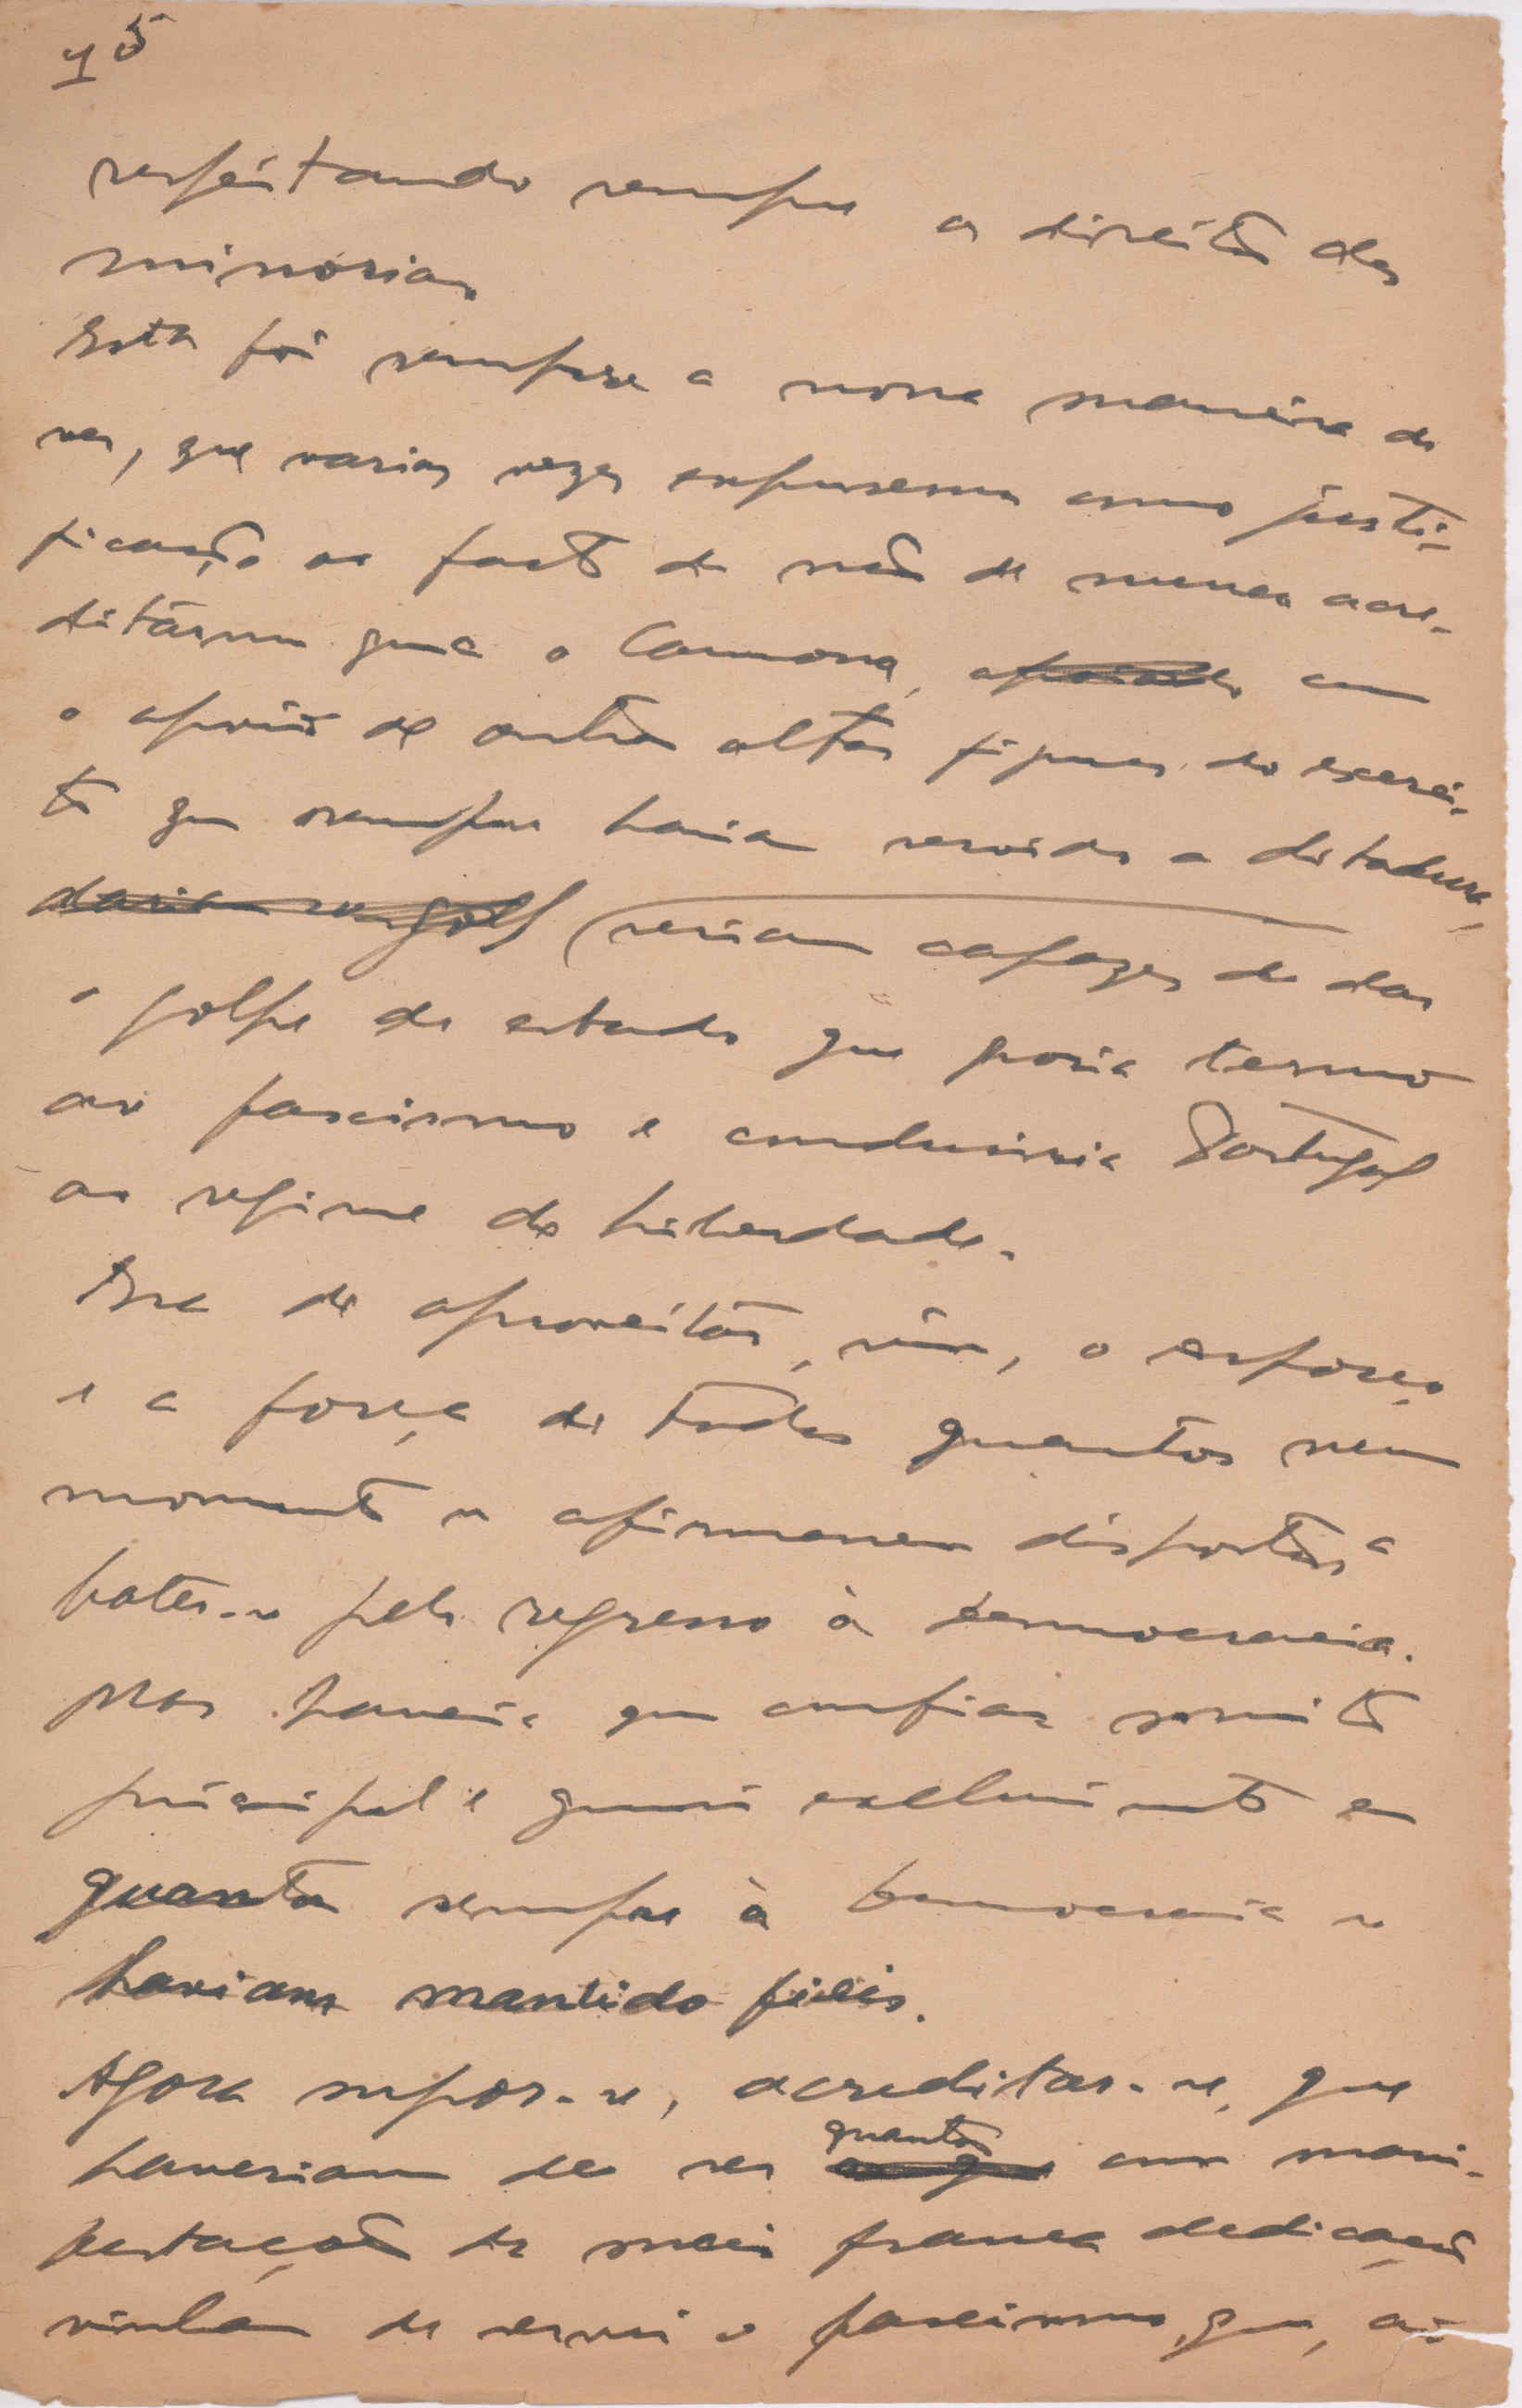 15
respeitando sempre os direitos das
minorias
Esta foi sempre a nossa maneira de
ver, que varias vezes expusemos como justi-
ficação ao facto de não de menos acre-
ditármos que o Carmona, apoiado com
o apoio de outras altas figuras do exerci-
to que sempre havia servido a ditadura,
dariam um golp seriam capazes de dar
o golpe de estado que poria termo
ao fascismo e conduziria Portugal
ao regime de liberdade.
Era de aproveitar, sim, o esforço
e a força de todos quantos nesse
momento se afirmassem dispostos a
bater-se pelo regresso à democracia.
Mas haveria que confiar muito
principal e quasi exclusivamente em
quantos sempre à democracia se
haviam mantido fieis.
Agora supor-se, acreditar-se, que
haveriam de ser quantos com mani-
festação da mais franca dedicação
vinham de servir o fascismo, que, ai